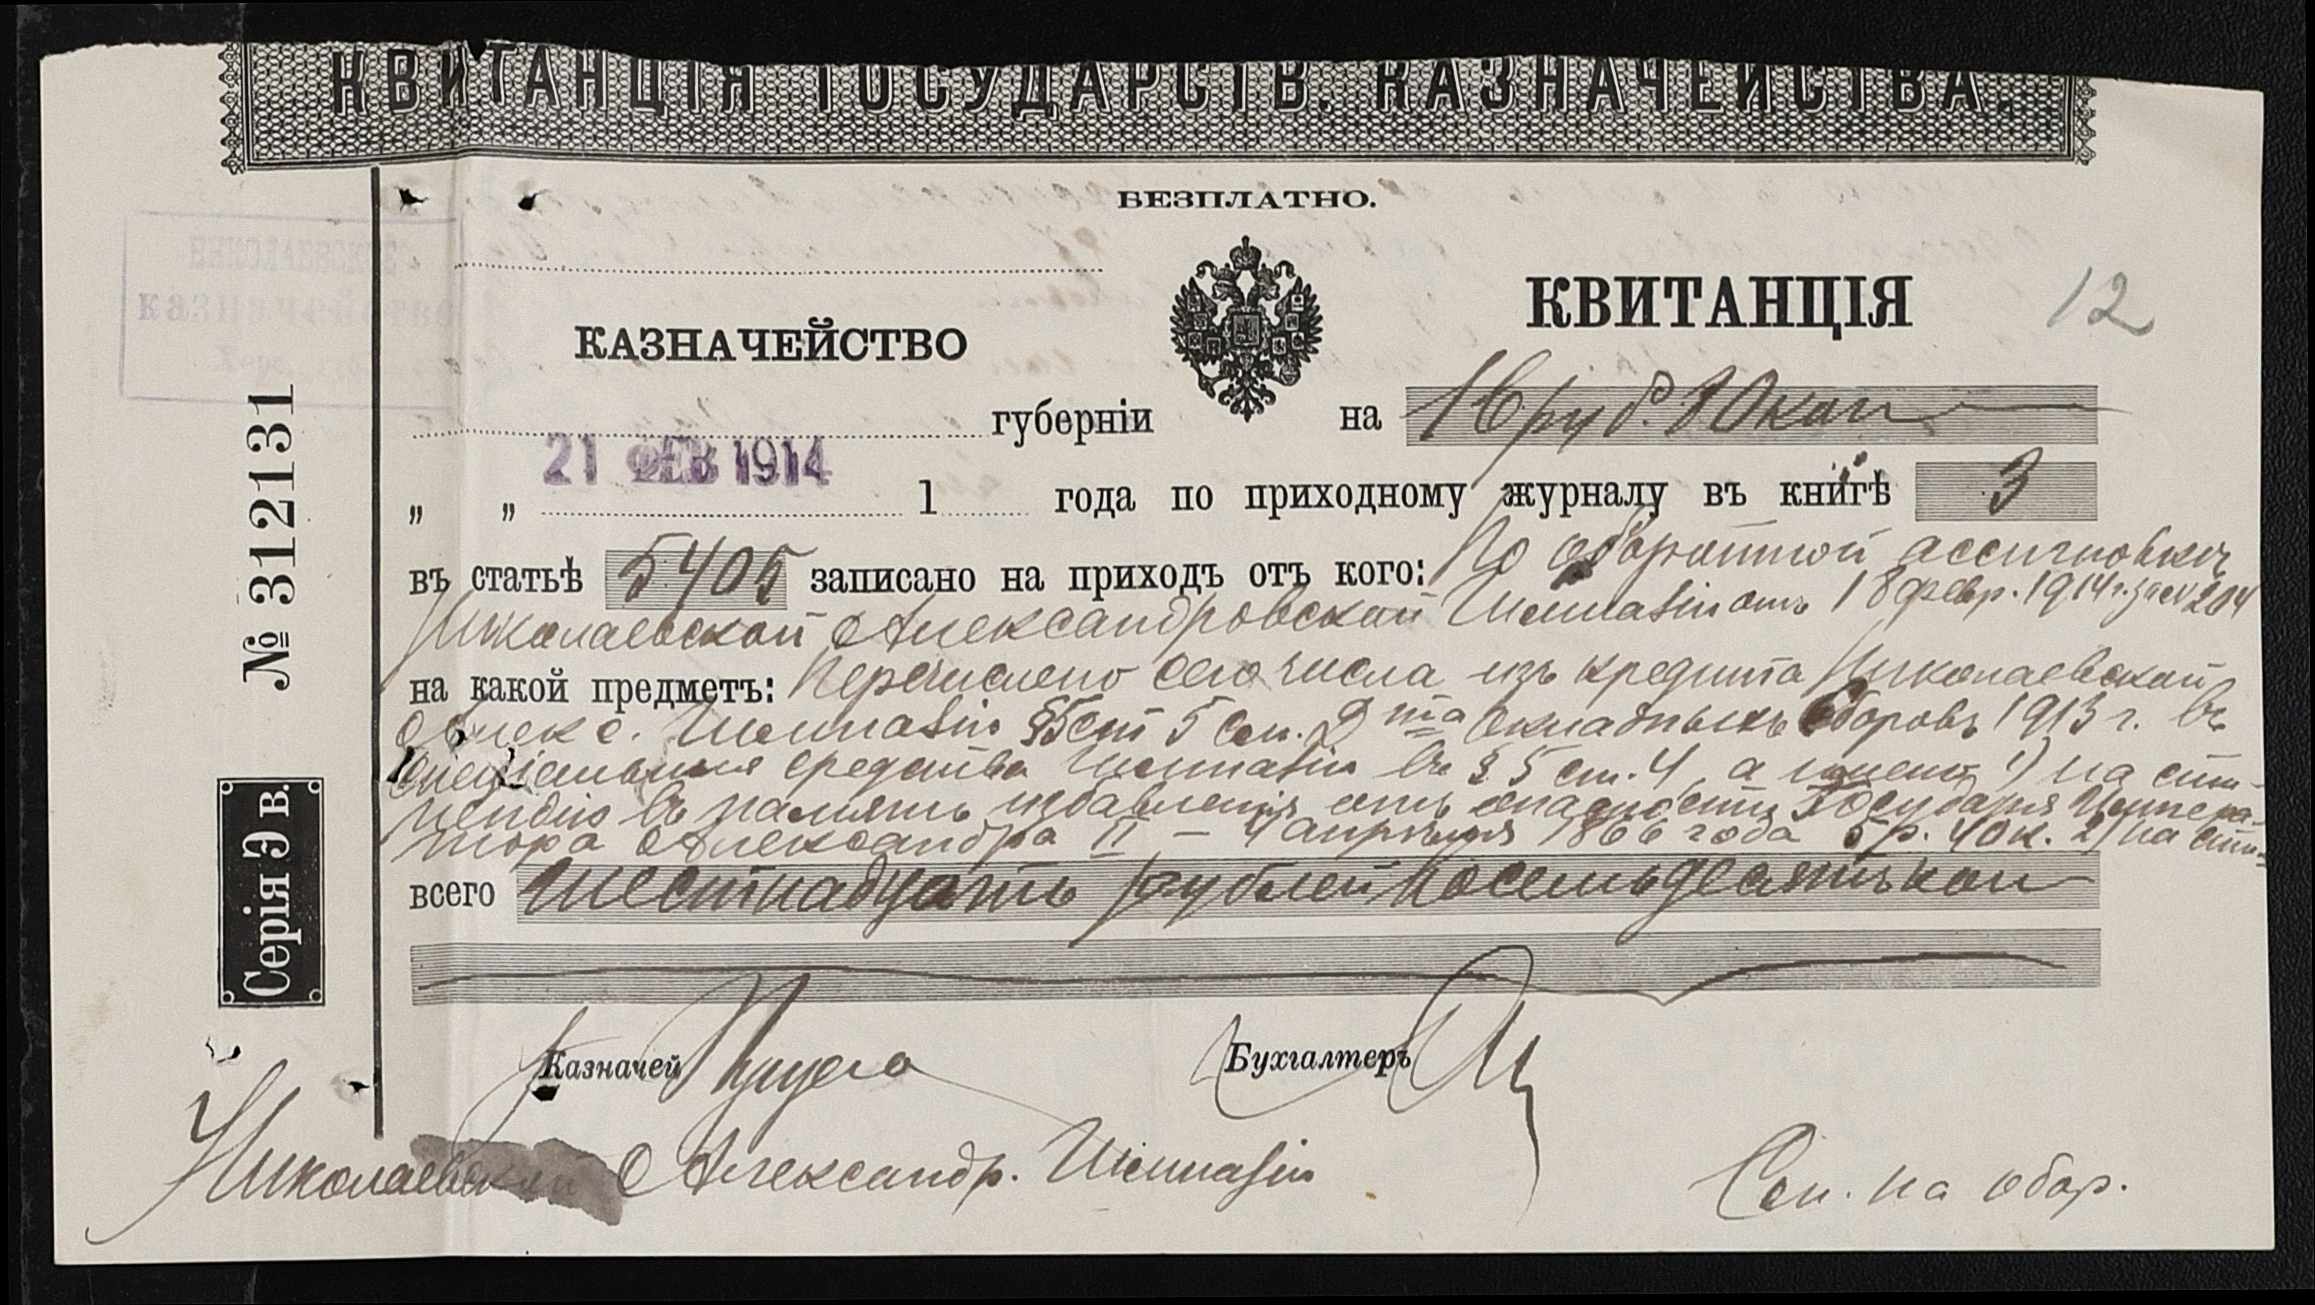 КВИТАНЦІЯ ГОСУДАРСТВ. КАЗНАЧЕЙСТВА.
БЕЗПЛАТНО.
НИКОЛАЕВСКОЕ
казначейство
Херс. губ.
КАЗНАЧЕЙСТВО
КВИТАНЦІЯ
12
губерніи
на 16 руб. 80 коп
21 ФЕВ 1914
„ „ 1 года по приходному журналу въ книгѣ 3
въ статьѣ 5405 записано на приходъ отъ кого: По оборотной ассигновкѣ
Николаевской Александровской Гимназіи отъ 18 февр. 1914 г. за № 204
на какой предметъ: Перечислено сего числа изъ кредита Николаевской
Алекс. Гимназіи §5 ст 5 см. Д-та окладныхъ сборовъ 1913 г. въ
спеціальныя средства Гимназіи въ § 5 ст. 4, а именно 1) на сти-
пендію въ память избавленія отъ опасности Государя Импера-
тора Александра II – 4 апрѣля 1866 года 5 р. 40 к. 2) на сти-
всего шестнадцать рублей восемьдесятъ коп
Казначей
Бухгалтеръ
Николаевской Александр. Гимназіи
См. на обор.
№ 312131
Серія Э в.